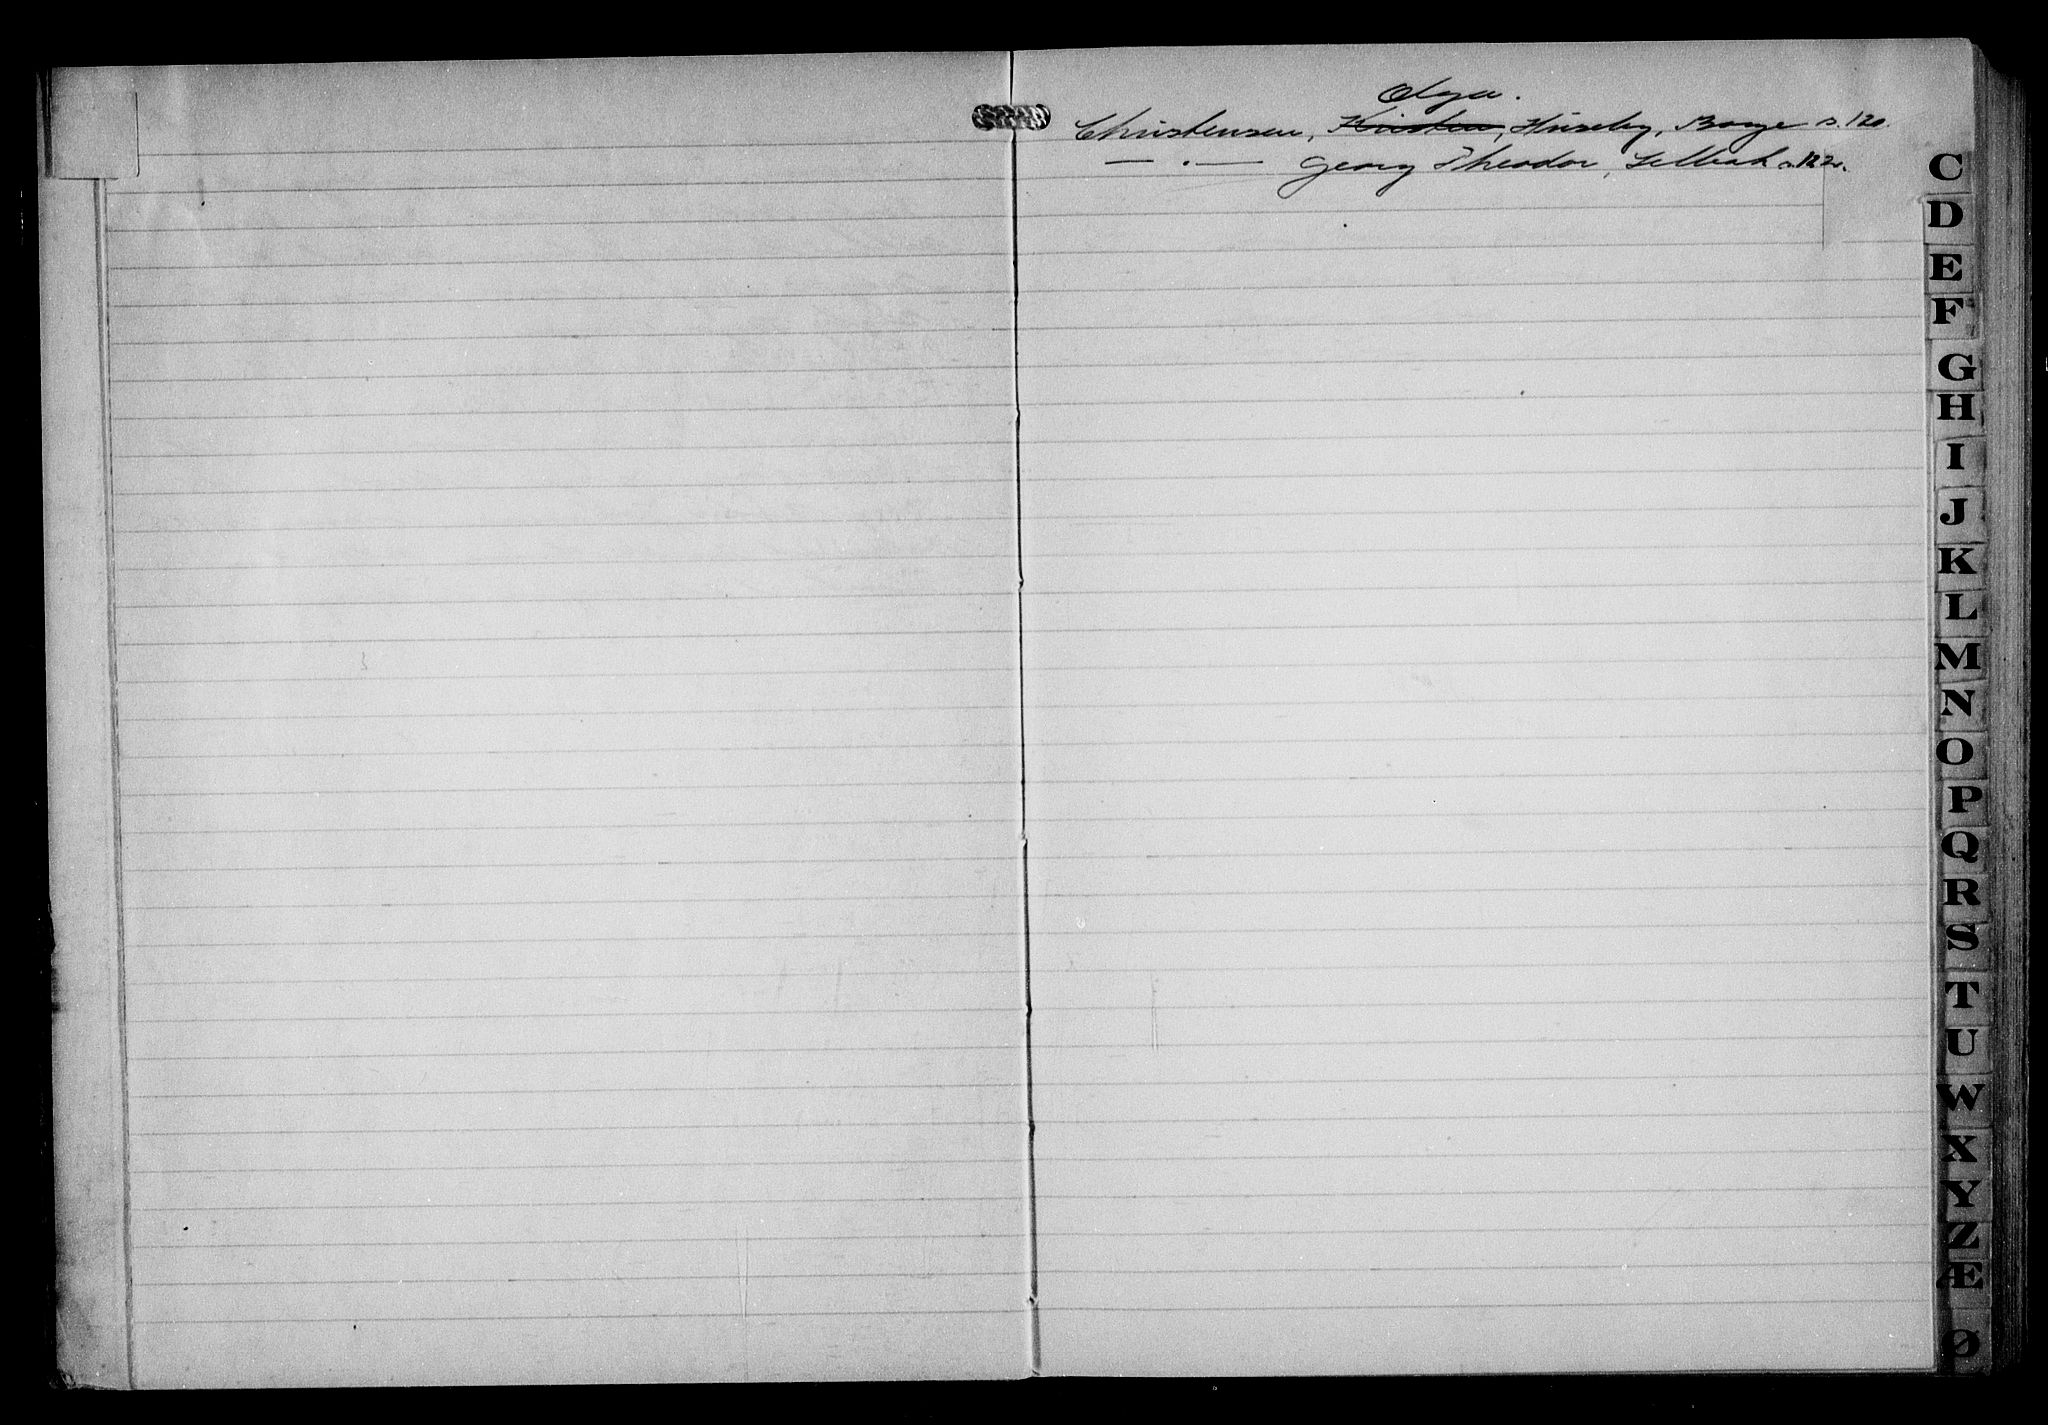 Olga.
Christensen, Kristen, Huseby, Borge s. 120.
— . — Georg Theodor, Selbak s. 122.
C
D
E
F
G
H
I
J
K
L
M
N
O
P
Q
R
S
T
U
W
X
Y
Z
Æ
Ø